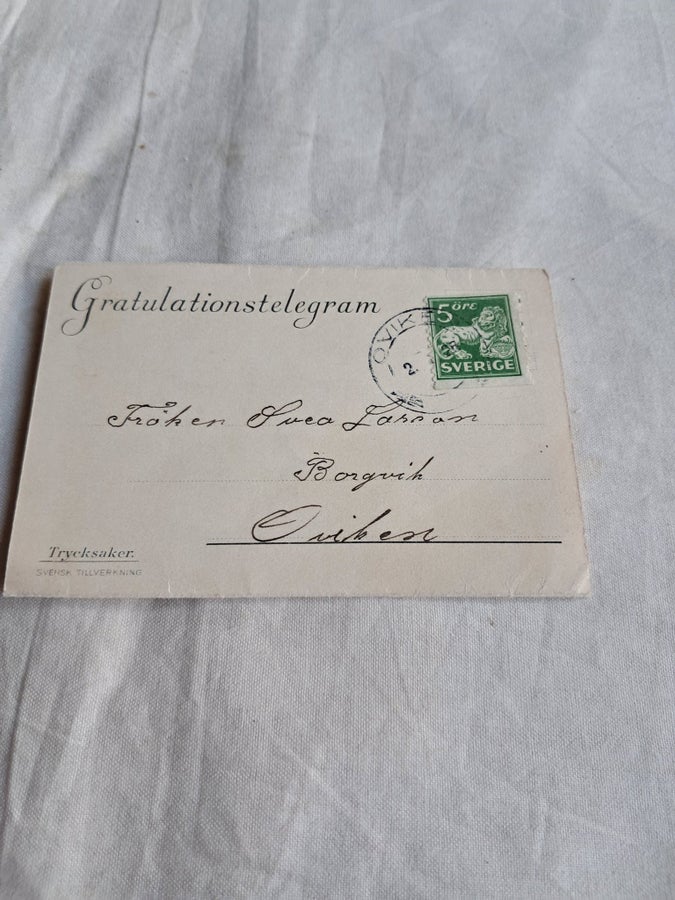 Gratulationstelegram
5 ÖRE
SVERIGE
OVIKE
2.
Fröken Svea Larsson
Borgvik
Oviken
Trycksaker.
SVENSK TILLVERKNING